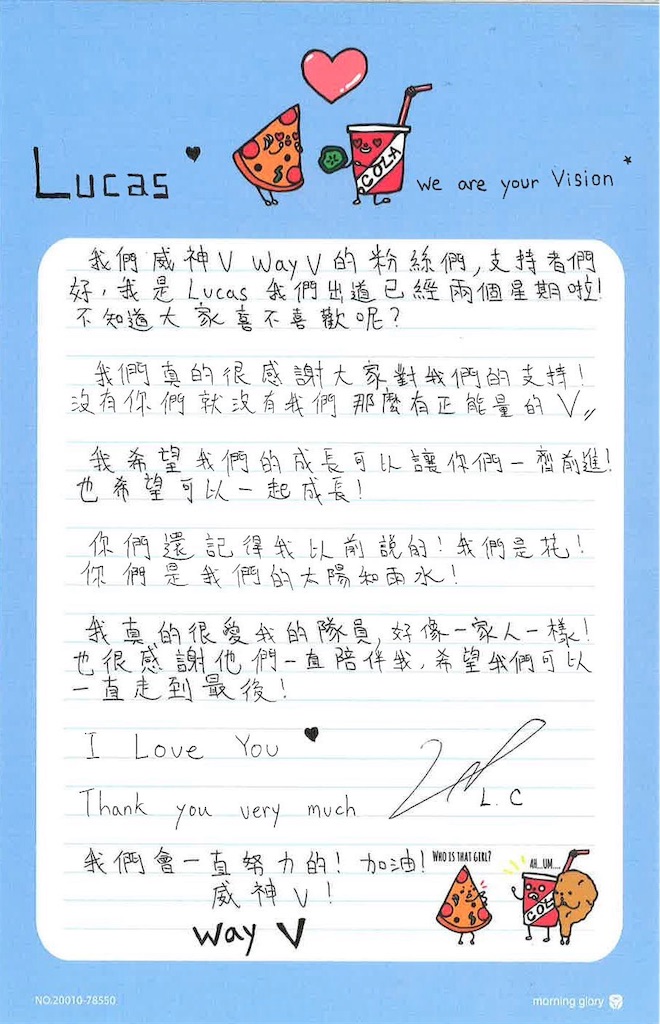 Lucas
COLA
we are your Vision
我們威神V WayV的粉絲們,支持者們
好,我是Lucas 我們出道已經兩個星期啦!
不知道大家喜不喜歡呢?
我們真的很感謝大家對我們的支持!
沒有你們就沒有我們那麼有正能量的V
我希望我們的成長可以讓你們一齊前進!
也希望可以一起成長!
你們還記得我以前說的!我們是花!
你們是我們的太陽和雨水!
我真的很愛我的隊員,好像一家人一樣!
也很感謝他們一直陪伴我,希望我們可以
一直走到最後!
I Love You
L.C
Thank you very much
我們會一直努力的!加油!
威神V!
Way V
WHO IS THAT GIRL?
AH...UM....
COL
NO.20010-78550
morning glory